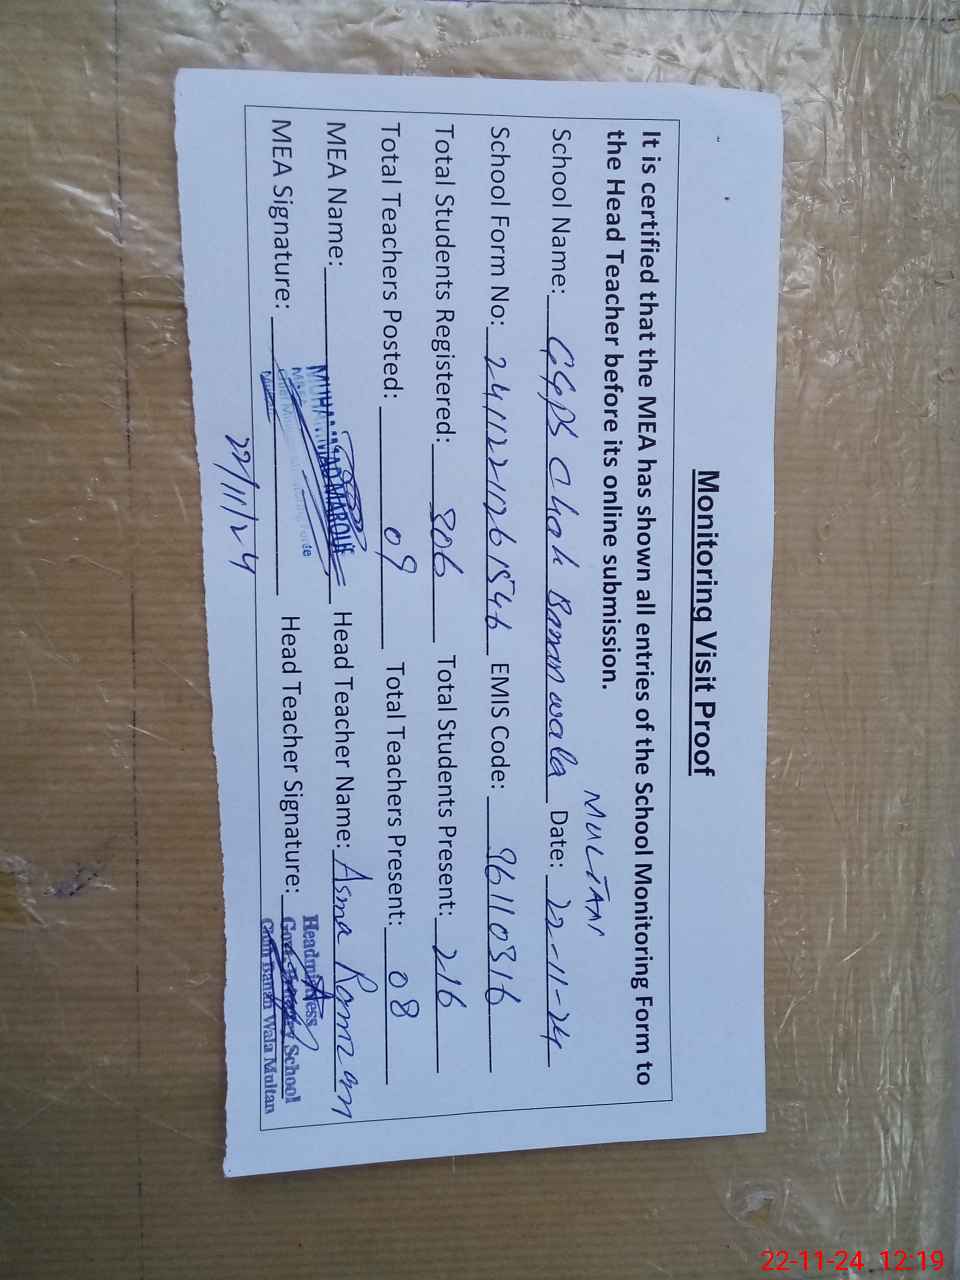 Monitoring Visit Proof
It is certified that the MEA has shown all entries of the School Monitoring Form to
the Head Teacher before its online submission.
MULTAN
School Name: GGPS Chah Bananwala Date: 22-11-24
School Form No: 2411221261546 EMIS Code: 96110316
Total Students Registered: 306 Total Students Present: 216
Total Teachers Posted: 09 Total Teachers Present: 08
MEA Name: MUHAMMAD MAROUF Head Teacher Name: Asma Ramzan
MEA Signature: Head Teacher Signature:
Headmistress
Govt. School
Wala Multan
22/11/24
22-11-24 12:19